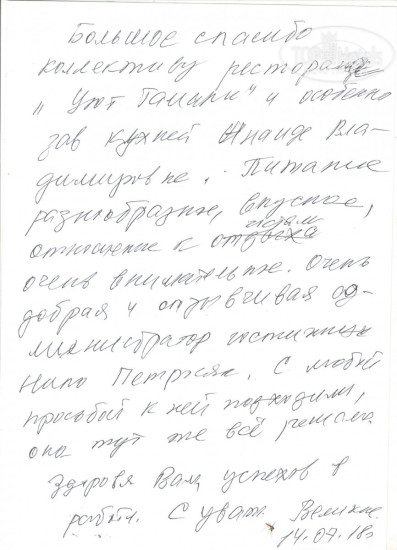 Большое спасибо
коллективу ресторана
"Уют Тамани" и особенно
зав кухней Жнаиде Вла-
димировне. Питание
разнообразное, вкусное,
отношение к гостям
очень внимательное. Очень
добрая и отзывчивая ад-
министратор гостиницы
Нино Петросян. С любой
просьбой к ней подходили,
она тут же всё решала.
Здоровя Вам успехов в
работе. С уваж.
14.07.18г